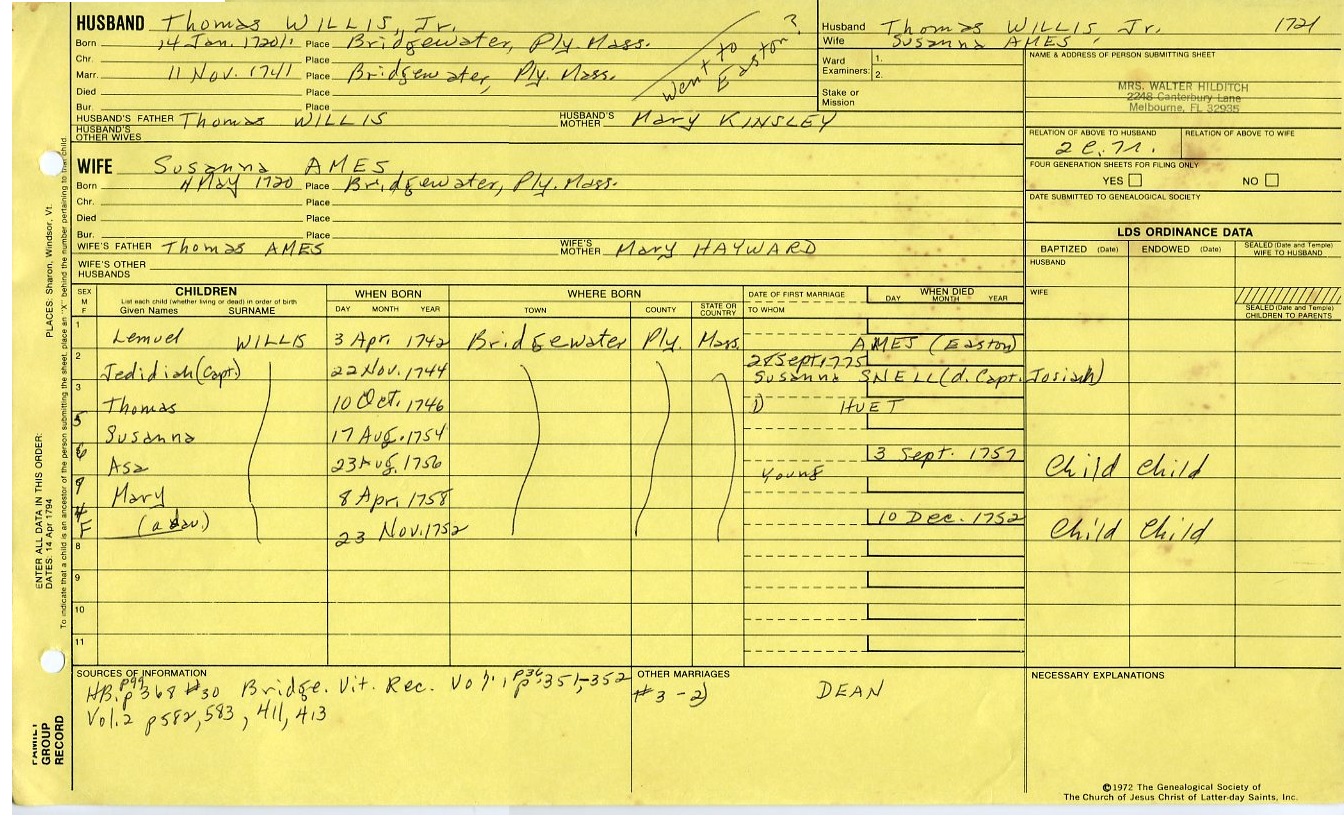 HUSBAND Thomas WILLIS, Jr.
Born 14 Jan. 1720/1 Place Bridgewater, Ply. Mass.
Chr. Place
Marr. 11 Nov. 1741 Place Bridgewater, Ply. Mass.
Died Place
Bur. Place
went to Easton?
HUSBAND'S FATHER Thomas WILLIS HUSBAND'S MOTHER Mary KINSLEY
HUSBAND'S OTHER WIVES
Husband Thomas WILLIS, Jr. 1721
Wife Susanna AMES
Ward Examiners: 1.
2.
Stake or Mission
NAME & ADDRESS OF PERSON SUBMITTING SHEET
MRS. WALTER HILDITCH
2248 Canterbury Lane
Melbourne, FL 32935
RELATION OF ABOVE TO HUSBAND RELATION OF ABOVE TO WIFE
FOUR GENERATION SHEETS FOR FILING ONLY
YES NO
DATE SUBMITTED TO GENEALOGICAL SOCIETY
WIFE Susanna AMES
Born 4 May 1720 Place Bridgewater, Ply. Mass.
Chr. Place
Died Place
Bur. Place
WIFE'S FATHER Thomas AMES WIFE'S MOTHER Mary HAYWARD
WIFE'S OTHER HUSBANDS
LDS ORDINANCE DATA
BAPTIZED (Date) ENDOWED (Date) SEALED (Date and Temple) WIFE TO HUSBAND
HUSBAND
WIFE
SEALED (Date and Temple) CHILDREN TO PARENTS
SEX M F CHILDREN WHEN BORN WHERE BORN DATE OF FIRST MARRIAGE WHEN DIED
List each child (whether living or dead) in order of birth
Given Names SURNAME DAY MONTH YEAR TOWN COUNTY STATE OR COUNTRY TO WHOM DAY MONTH YEAR
1 Lemuel WILLIS 3 Apr. 1742 Bridgewater Ply. Mass. AMES (Easton)
2 Jedidiah (Capt.) 22 Nov. 1744 28 Sept. 1775
Susanna SNELL (d. Capt. Josiah)
3 Thomas 10 Oct. 1746 D HUET
5 Susanna 17 Aug. 1754
6 Asa 23 Aug. 1756 Young 3 Sept. 1757 Child Child
Mary 8 Apr. 1758
4 F (a dau.) 23 Nov. 1752 10 Dec. 1752 Child Child
8
9
10
11
SOURCES OF INFORMATION
HB. p99 p368 #30 Bridge. Vit. Rec. Vol. 1, p36, 351, 352
Vol. 2 p582, 583, 411, 413
OTHER MARRIAGES
#3 - 2) DEAN
NECESSARY EXPLANATIONS
©1972 The Genealogical Society of
The Church of Jesus Christ of Latter-day Saints, Inc.
ENTER ALL DATA IN THIS ORDER:
DATES: 14 Apr 1794
PLACES: Sharon, Windsor, Vt.
To indicate that a child is an ancestor of the person submitting the sheet, place an "X" behind the number pertaining to that child.
FAMILY GROUP RECORD